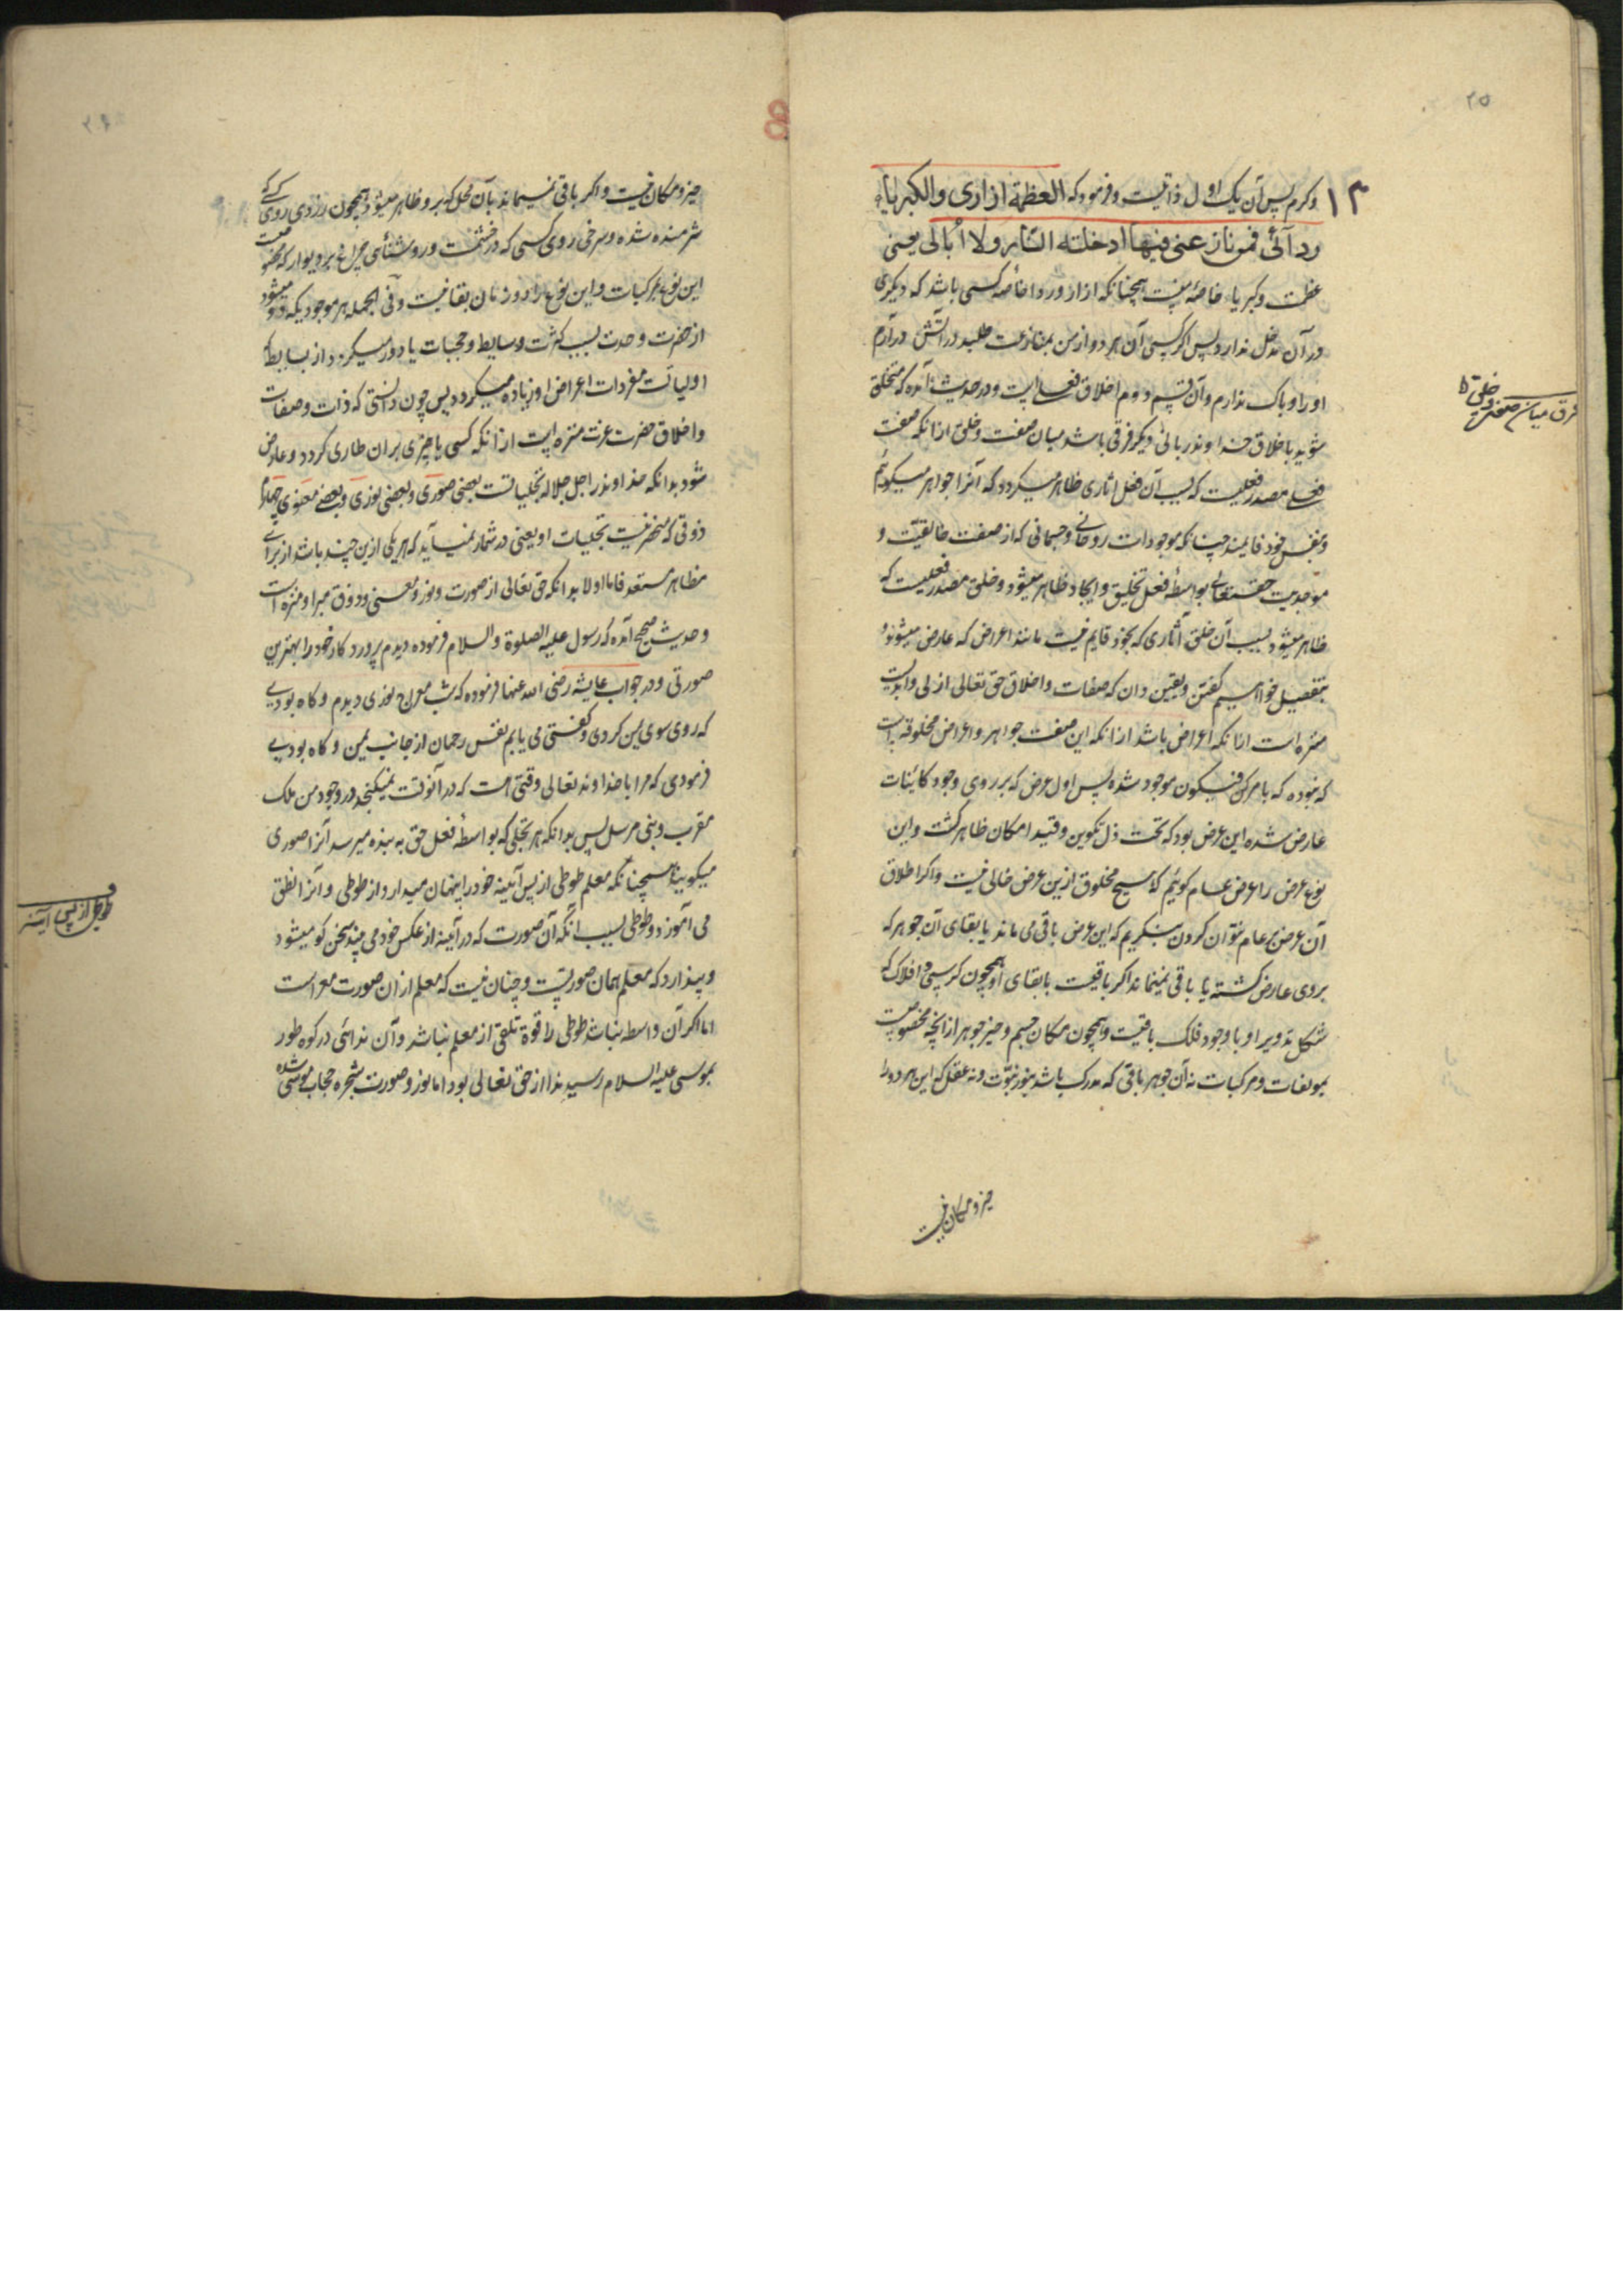 ۲۵
۱۳
وکرم پس آن یک اول ذاتیست و فرموده که العظمة ازاری والکبریاء
ردآئی فمن نازعنی فیهما ادخلته النار ولا اُبالی یعنی
عظمت وکبریا خاصهٔ منست همچنانکه ازار وردا خاصهٔ کسی باشد که دیگری
در آن مدخل ندارد پس اگر کسی آن هر دو از من بمنازعت طلبد در آتش درآرم
او را و باک ندارم و آن قسم دوم اخلاق فعلی است ودر حدیث آمده که متخلق
شوید باخلاق خداوند ربانی دیگر فرقی باشد میان صفت وخلق ازانکه صفت
فعلی مصدر فعلیست که بسبب آن فعل اثاری ظاهر میگردد که آنرا جواهر میگوئیم
وبنفس خود قایمند چنانکه موجودات روحانی وجسمانی که از صفت خالقیت و
موجدیت حقتعالی بواسطهٔ فعل تخلیق وایجاد ظاهر میشود وخلق مصدر فعلیست که
ظاهر میشود بسبب آن خلق آثاری که بخود قایم نیست مانند اعراض که عارض میشوند و
بتفصیل خواهیم گفتن ویقین دان که صفات واخلاق حق تعالی ازلی وابدیست
منزه است ازانکه اعراض باشد ازانکه این صفت جواهر واعراض مخلوقه است
که نبوده که بامر کن فیکون موجود شده پس اول عرض که بر روی وجود کائنات
عارض شده این عرض بود که تحت ذل تکوین وقید امکان ظاهر گشت واین
نوع عرض را عرض عام گوئیم که هیچ مخلوق ازین عرض خالی نیست واگر اطلاق
آن عرض عام نتوان کردن بنگریم که این عرض باقی می ماند یا بقای آن جوهر که
بروی عارض گشته یا باقی نمیماند اگر باقیست بابقای او همچون کرسی وافلاک که
شکل تدویر او با وجود فلک باقیست وهمچون مکان جسم وحیز جوهر ازانچه مخصوصست
بمولفات ومرکبات نه آن جوهر باقی که مدرک باشد بنور نبوّت ونه عقل که این هر دو را
حیز و مکان نیست
فرق میان صفت و خلق
حیز ومکان نیست واگر باقی نمیماند بآن محل که برو ظاهر میشود همچون زردی روی کسی که
شرمنده شده وسرخی روی کسی که در خشمست وروشنائی چراغ بر دیوار که مخصوصست
این نوع بمرکبات واین نوع را دو زمان بقا نیست وفی الجمله هر موجودیکه دورتر میشود
از حضرت وحدت بسبب کثرت وسایط وحجبات یا دور میگردد از بسایط که
اولیات مفردات اعراض او زیاده میگردد پس چون دانستی که ذات وصفات
واخلاق حضرت عزت منزه است ازانکه کسی یا چیزی بران طاری گردد وعارض
شود بدانکه خداوند را جل جلاله تجلیاتست بعضی صوری وبعضی نوری وبعضی معنوی چهارم
ذوقی که منحصر نیست تجلیات او یعنی در شمار نمیآید که هر یکی ازین چند باشد از برای
مظاهر مستعد فاما اولا بدانکه حق تعالی از صورت ونور ومعنی وذوق مبرا ومنزه است
وحدیث صحیح آمده که رسول علیه الصلوة والسلام فرموده دیدم پروردکار خود را بهترین
صورتی ودر جواب عایشه رضی الله عنها فرموده که شب معراج نوری دیدم وکاه بودی
که روی سوی یمن کردی وگفتی می یابم نفس رحمان از جانب یمن وکاه بودی
فرمودی که مرا با خداوند تعالی وقتی است که در آنوقت نمیگنجد در وجود من ملک
مقرب ونبی مرسل پس بدانکه هر تجلی که بواسطهٔ فعل حق به بنده میرسد آنرا صوری
میگویند همچنانکه معلم طوطی از پس آیینه خود را پنهان میدارد از طوطی وآنرا نطق
می آموزد وطوطی بسبب آنکه آن صورت که در آیینه از عکس خود می بیند سخن گو میشود
وپندارد که معلم همان صورتست وچنان نیست که معلم از آن صورت معراست
اما اگر آن واسطه نباشد طوطی را قوة تلقی از معلم نباشد وآن ندائی در کوه طور
بموسی علیه السلام رسید ندا از حق تعالی بود اما نور وصورت شجره حجاب موسی شده
طوطی از پس آینه